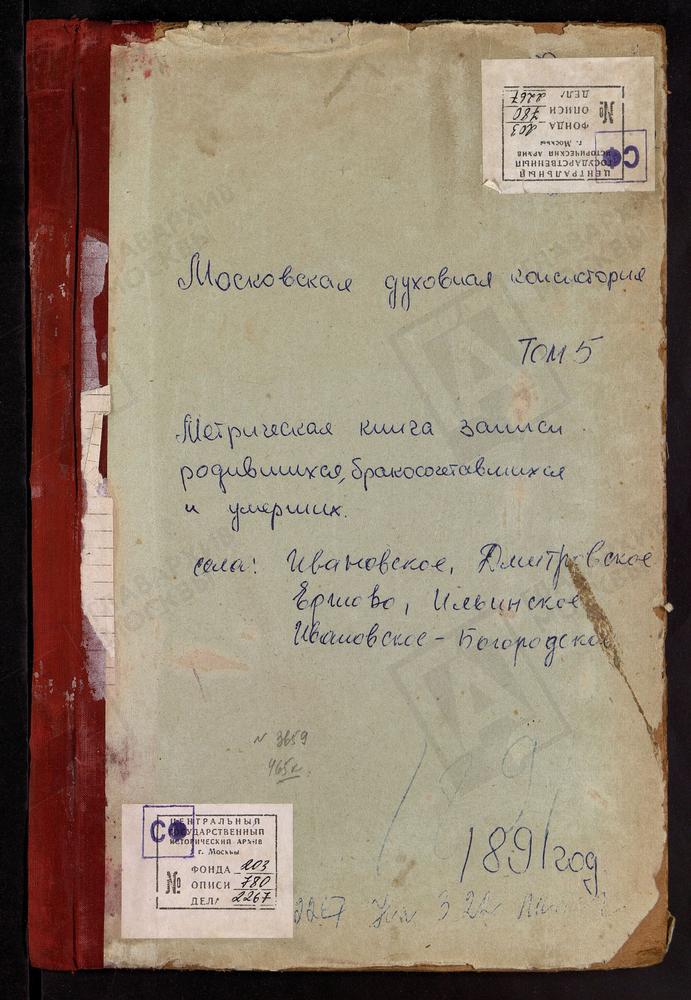 ЦЕНТРАЛЬНЫЙ
ГОСУДАРСТВЕННЫЙ
ИСТОРИЧЕСКИЙ АРХИВ
г. Москвы
СФ
№
ФОНДА 203
ОПИСИ 780
ДЕЛА 2267
Московская духовная консистория
Том 5
Метрическая книга записи
родившихся, бракосочетавшихся
и умерших.
села: Ивановское, Дмитровское
Ершово, Ильинское
Ивановское-Богородское
N 3659
465л.
1891 год
ЦЕНТРАЛЬНЫЙ
ГОСУДАРСТВЕННЫЙ
ИСТОРИЧЕСКИЙ АРХИВ
г. Москвы
СФ
№
ФОНДА 203
ОПИСИ 780
ДЕЛА 2267
2267